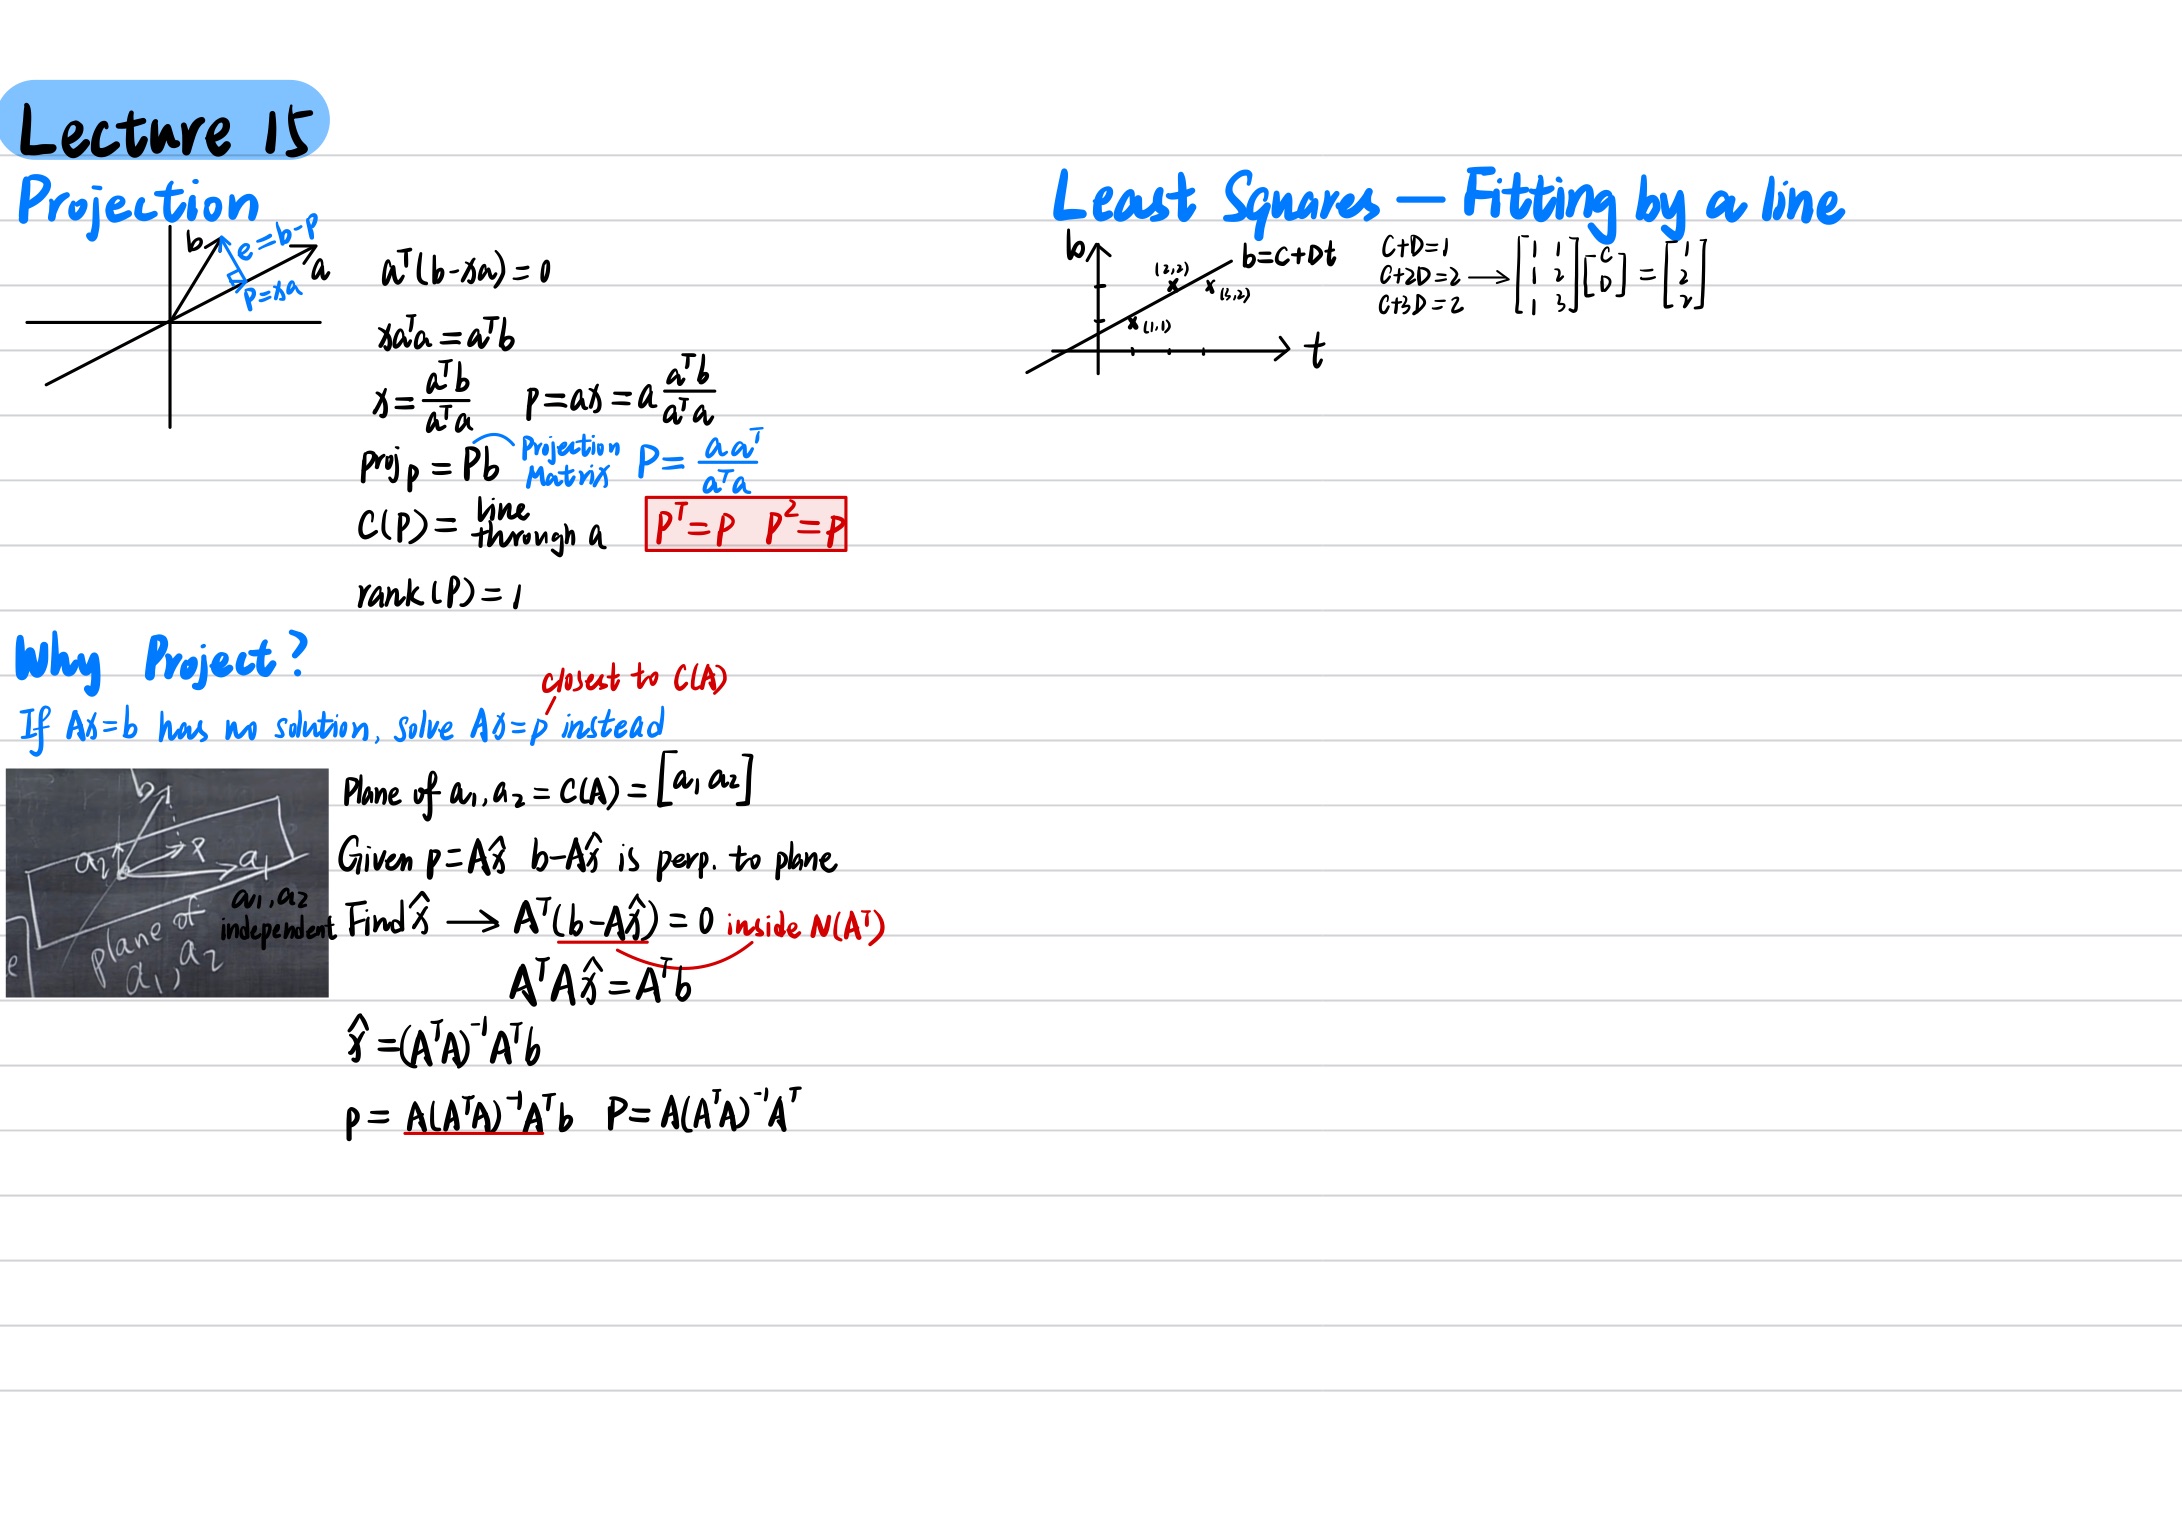 Lecture 15
Projection
b
e=b-p
a
p=xa
aᵀ(b-xa)=0
xaᵀa=aᵀb
x=aᵀb/aᵀa p=ax=a aᵀb/aᵀa
proj_p=Pb Projection Matrix P=aaᵀ/aᵀa
C(P)=line through a Pᵀ=P P²=P
rank(P)=1
Why Project?
closest to C(A)
If Ax=b has no solution, solve Ax=p instead
b
a₂ p a₁
plane of a₁, a₂
a₁,a₂ independent
Plane of a₁,a₂=C(A)=[a₁ a₂]
Given p=Ax̂ b-Ax̂ is perp. to plane
Find x̂ → Aᵀ(b-Ax̂)=0 inside N(Aᵀ)
AᵀAx̂=Aᵀb
x̂=(AᵀA)⁻¹Aᵀb
p=A(AᵀA)⁻¹Aᵀb P=A(AᵀA)⁻¹Aᵀ
Least Squares — Fitting by a line
b
b=C+Dt
(2,2)
(3,2)
(1,1)
t
C+D=1
C+2D=2
C+3D=2
→ [1 1; 1 2; 1 3][C; D]=[1; 2; 2]